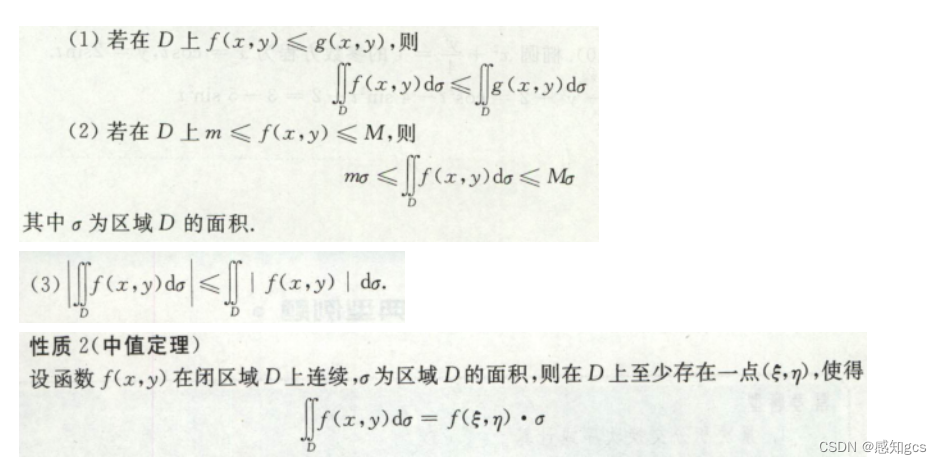 (1) 若在 D 上 f(x,y) ⩽ g(x,y),则
∬_D f(x,y)dσ ⩽ ∬_D g(x,y)dσ
(2) 若在 D 上 m ⩽ f(x,y) ⩽ M,则
mσ ⩽ ∬_D f(x,y)dσ ⩽ Mσ
其中 σ 为区域 D 的面积.
(3) |∬_D f(x,y)dσ| ⩽ ∬_D | f(x,y) | dσ.
性质 2(中值定理)
设函数 f(x,y) 在闭区域 D 上连续,σ为区域 D 的面积,则在 D 上至少存在一点(ξ,η),使得
∬_D f(x,y)dσ = f(ξ,η) · σ
CSDN @感知gcs